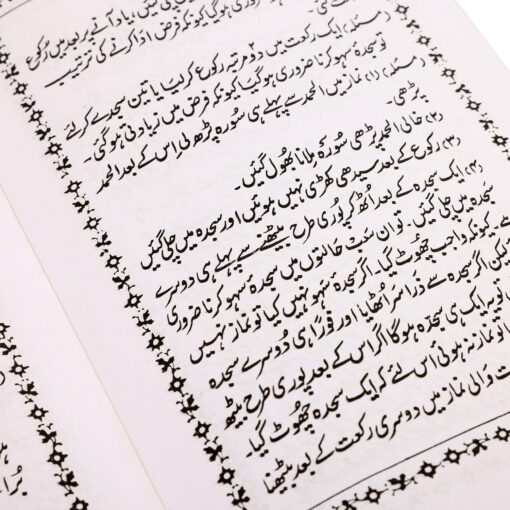 یاد آنے پر بعد میں رکوع
ضروری ہوگی کیونکہ فرض ادا کرنے کی ترتیب
(مسئلہ) ایک رکعت میں دو مرتبہ رکوع کر لیا یا تین سجدے کر لئے
تو سجدہ سہو کرنا ضروری ہوگیا کیونکہ فرض میں زیادتی ہوگئی۔
(مسئلہ) (۱) نماز میں الحمد سے پہلے ہی سورۃ پڑھ لی اس کے بعد الحمد
پڑھی۔
(۲) خالی الحمد پڑھی سورۃ ملانا بھول گئیں۔
(۳) رکوع کے بعد سیدھی کھڑی نہیں ہوئیں اور سجدہ میں چلی گئیں
(۴) ایک سجدہ کے بعد اٹھ کر پوری طرح بیٹھنے سے پہلے ہی دوسرے
سجدہ میں چلی گئیں۔ تو ان سب حالتوں میں سجدہ سہو کرنا ضروری
کیونکہ واجب چھوٹ گیا۔ اگر سجدہ سہو نہیں کیا تو نماز نہیں
لیکن اگر سجدہ سے ذرا سر اٹھایا اور فورًا ہی دوسرے سجدہ
تو یہ ایک ہی سجدہ ہوگا اگر اس کے بعد پوری طرح بیٹھ
تو نماز نہ ہوئی اس لئے کہ ایک سجدہ چھوٹ گیا۔
والی نماز میں دوسری رکعت کے بعد بیٹھنا